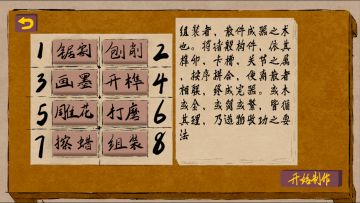 1 锯割 刨削 2
3 画墨 开榫 4
5 雕花 打磨 6
7 擦蜡 组装 8
组装者，散件成器之术
也。将诸般构件，依其
榫卯，卡槽，关节之属
，按序拼合，使离散者
相联，终成完器。或木
或金，或简或繁，皆循
其理，乃造物收功之要
法
开始制作